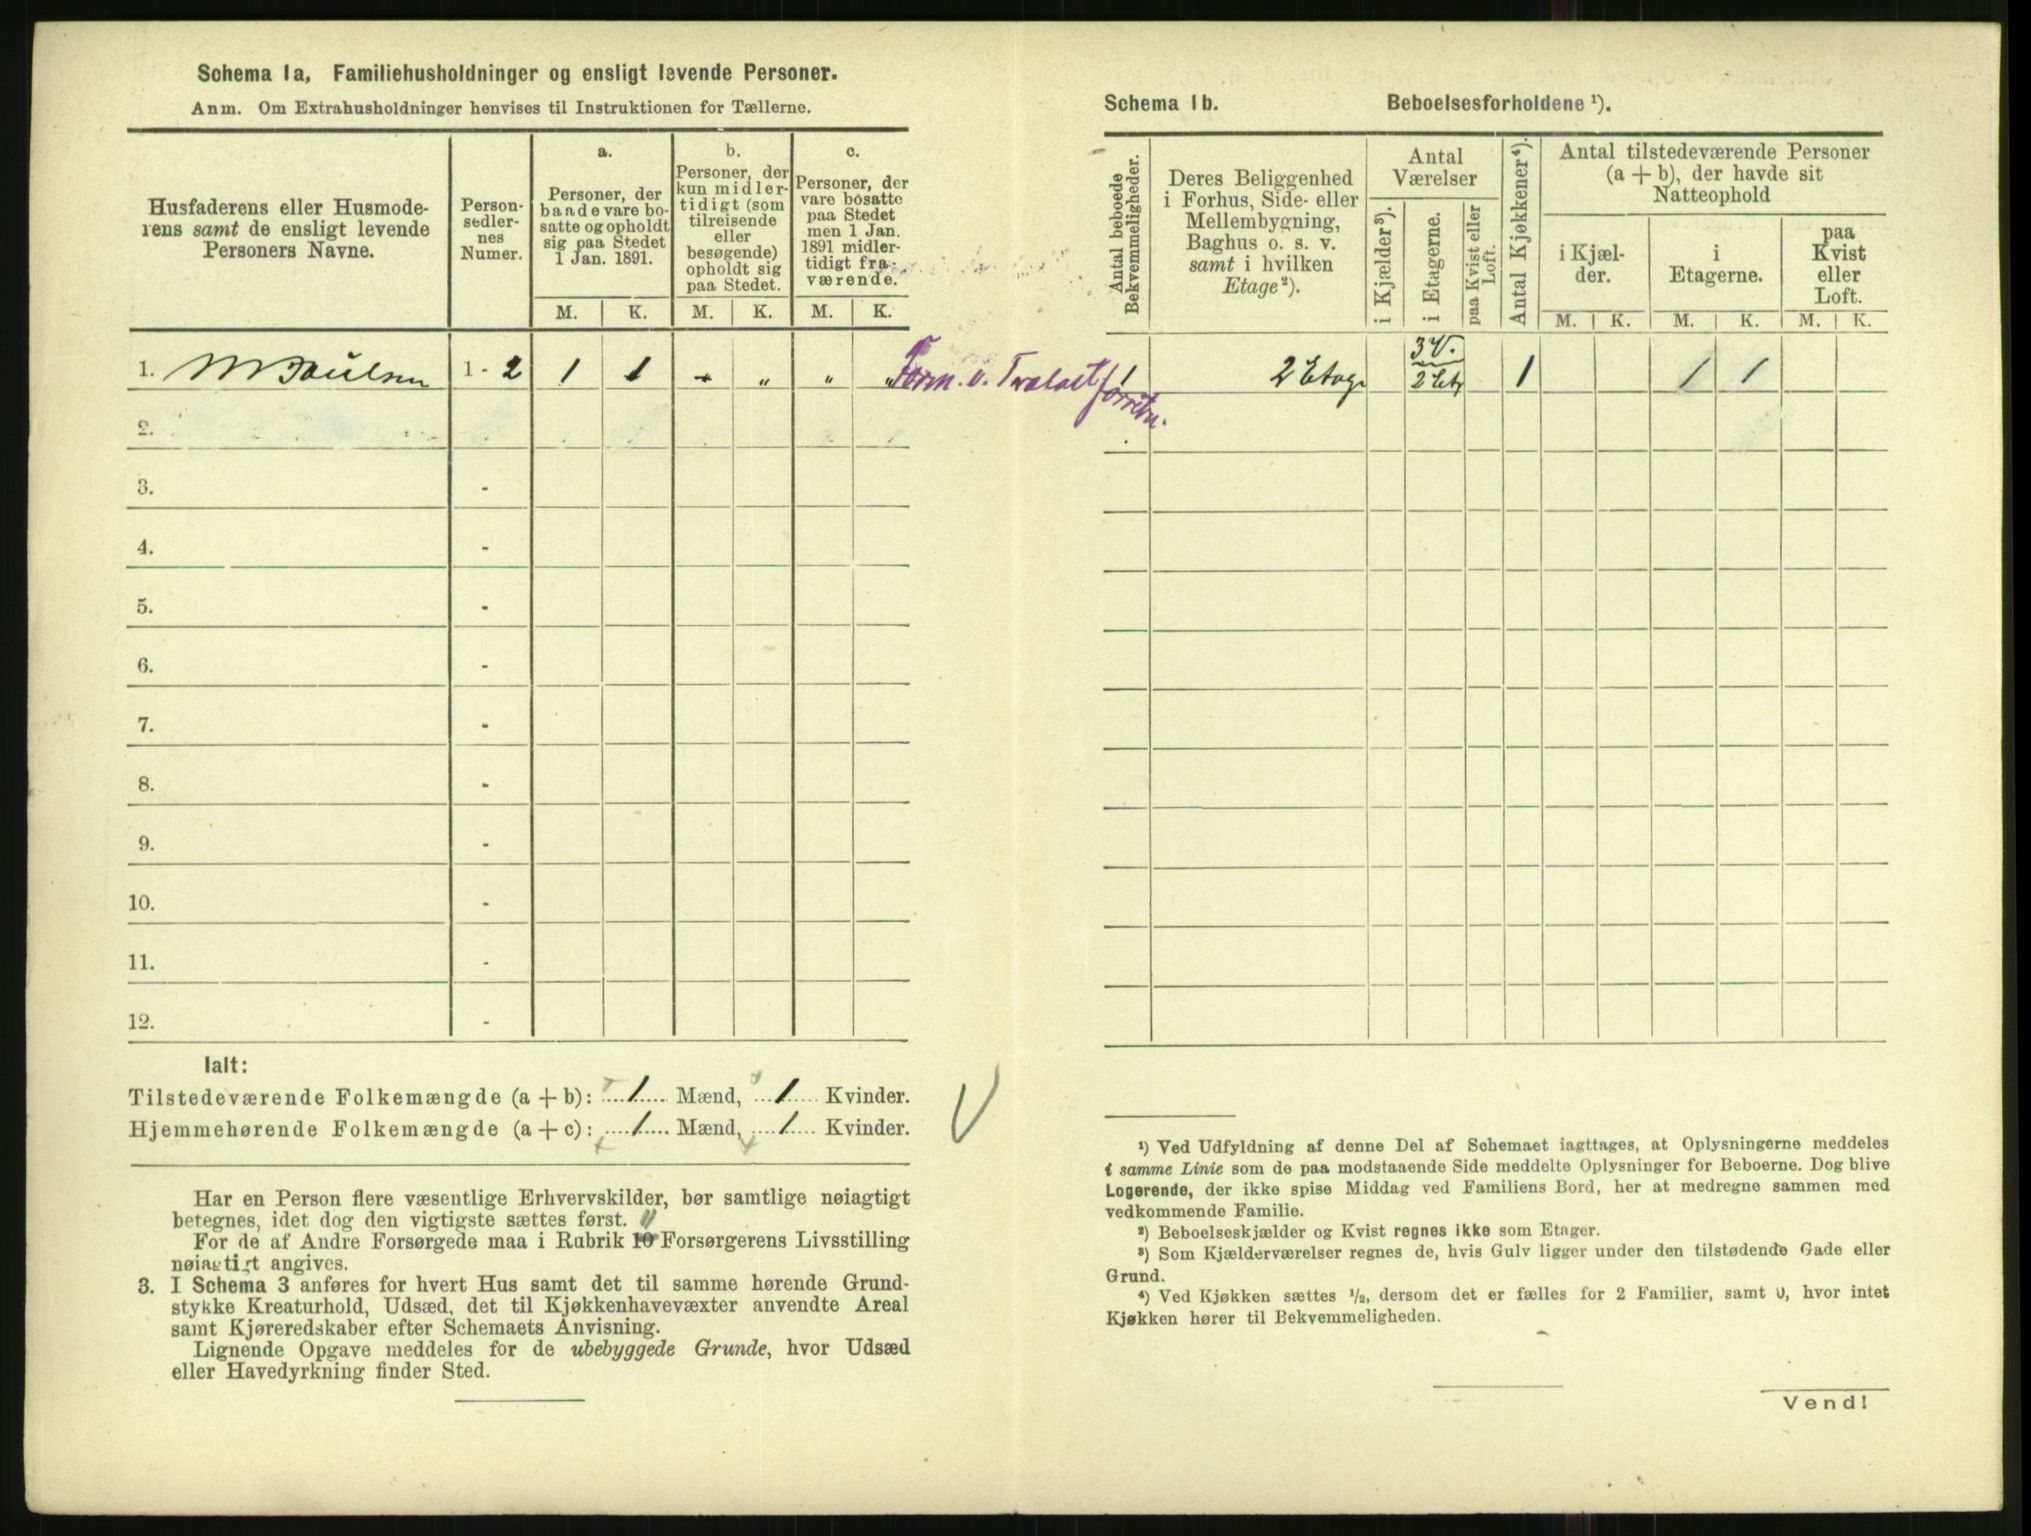 Schema 1a, Familiehusholdninger og ensligt levende Personer.
Anm. Om Extrahusholdninger henvises til Instruktionen for Tællerne.
Husfaderens eller Husmode-
rens samt de ensligt levende
Personers Navne.
Person-
sedler-
nes
Numer.
a.
Personer, der
baade vare bo-
satte og opholdt
sig paa Stedet
1 Jan. 1891.
b.
Personer, der
kun midler-
tidigt (som
tilreisende
eller
besøgende)
opholdt sig
paa Stedet.
c.
Personer, der
vare bosatte
paa Stedet
men 1 Jan.
1891 midler-
tidigt fra-
værende.
M. K. M. K. M. K.
1. M Paulsen 1 - 2 1 1 - „ „ „
2.
3. -
4. -
5. -
6. -
7. -
8. -
9. -
10. -
11. -
12. -
Ialt:
Tilstedeværende Folkemængde (a + b): 1 Mænd, 1 Kvinder.
Hjemmehørende Folkemængde (a + c): 1 Mænd, 1 Kvinder.
Har en Person flere væsentlige Erhvervskilder, bør samtlige nøiagtigt
betegnes, idet dog den vigtigste sættes først.
For de af Andre Forsørgede maa i Rubrik 10 Forsørgerens Livsstilling
nøiagtigt angives.
3. I Schema 3 anføres for hvert Hus samt det til samme hørende Grund-
stykke Kreaturhold, Udsæd, det til Kjøkkenhavevæxter anvendte Areal
samt Kjøreredskaber efter Schemaets Anvisning.
Lignende Opgave meddeles for de ubebyggede Grunde, hvor Udsæd
eller Havedyrkning finder Sted.
Schema 1b. Beboelsesforholdene ¹).
Antal beboede
Bekvemmeligheder.
Deres Beliggenhed
i Forhus, Side- eller
Mellembygning,
Baghus o. s. v.
samt i hvilken
Etage ²).
Antal
Værelser
i Kjælder ³).
i Etagerne.
paa Kvist eller
Loft.
Antal Kjøkkener ⁴).
Antal tilstedeværende Personer
(a + b), der havde sit
Natteophold
i Kjæl-
der.
i
Etagerne.
paa
Kvist
eller
Loft.
M. K. M. K. M. K.
Form. v. Trælastforretn.
1 2 Etage 3 V. 1 1 1
2 Etg
¹) Ved Udfyldning af denne Del af Schemaet iagttages, at Oplysningerne meddeles
i samme Linie som de paa modstaaende Side meddelte Oplysninger for Beboerne. Dog blive
Logerende, der ikke spise Middag ved Familiens Bord, her at medregne sammen med
vedkommende Familie.
²) Beboelseskjælder og Kvist regnes ikke som Etager.
³) Som Kjælderværelser regnes de, hvis Gulv ligger under den tilstødende Gade eller
Grund.
⁴) Ved Kjøkken sættes ¹/₂, dersom det er fælles for 2 Familier, samt 0, hvor intet
Kjøkken hører til Bekvemmeligheden.
Vend!